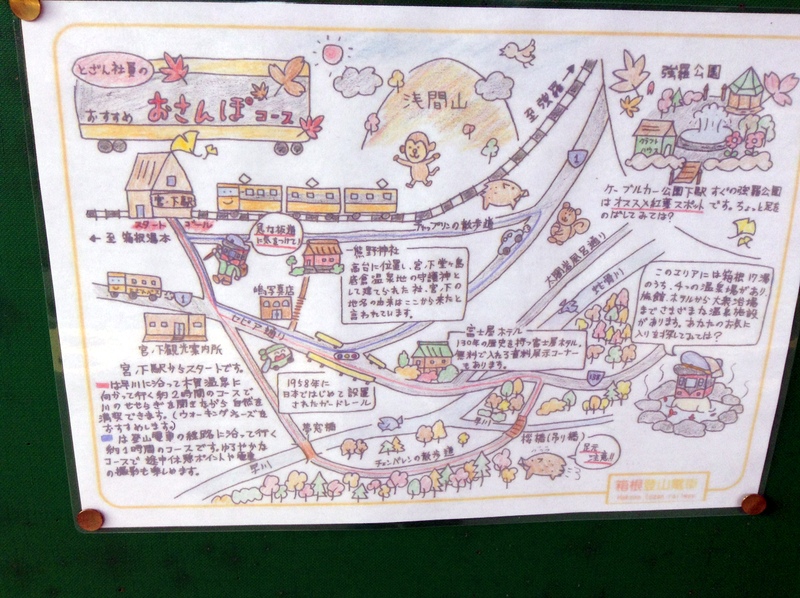 とざん社員の
おすすめ おさんぽコース
浅間山
至 強羅
強羅公園
クラフトハウス
宮ノ下駅
スタート ゴール
← 至 箱根湯本
急な坂道に気をつけて!
チャップリンの散歩道
1
ケーブルカー公園下駅 すぐの強羅公園
はオススメ紅葉スポットです。ちょっと足を
のばしてみては?
熊野神社
高台に位置し、宮ノ下堂ヶ島
底倉温泉地の守護神と
して建てられた社。宮ノ下の
地名の由来はここから来たと
言われています。
嶋写真店
セピア通り
1
宮ノ下観光案内所
蛇骨川
このエリアには箱根17湯
のうち、4つの温泉場があり、
旅館、ホテルから大衆浴場
までさまざまな温泉施設
があります。あなたのお気に
入りを探してみては?
富士屋ホテル
130年の歴史を持つ富士屋ホテル。
無料で入れる資料展示コーナー
もあります。
138
1958年に
日本ではじめて設置
されたガードレール
宮ノ下駅からスタートです。
は早川に沿って木賀温泉に
向かって行く約2時間のコースで
川のせせらぎを聞きながら自然を
満喫できます。(ウォーキングシューズを
おすすめします。)
は登山電車の線路に沿って行く
約1時間のコースです。ゆるやかな
コースで途中休憩ポイントや電車
の撮影も楽しめます。
早川
夢窓橋
チェンバレンの散歩道
早川
桜橋(吊り橋)
足元注意!!
箱根登山電車